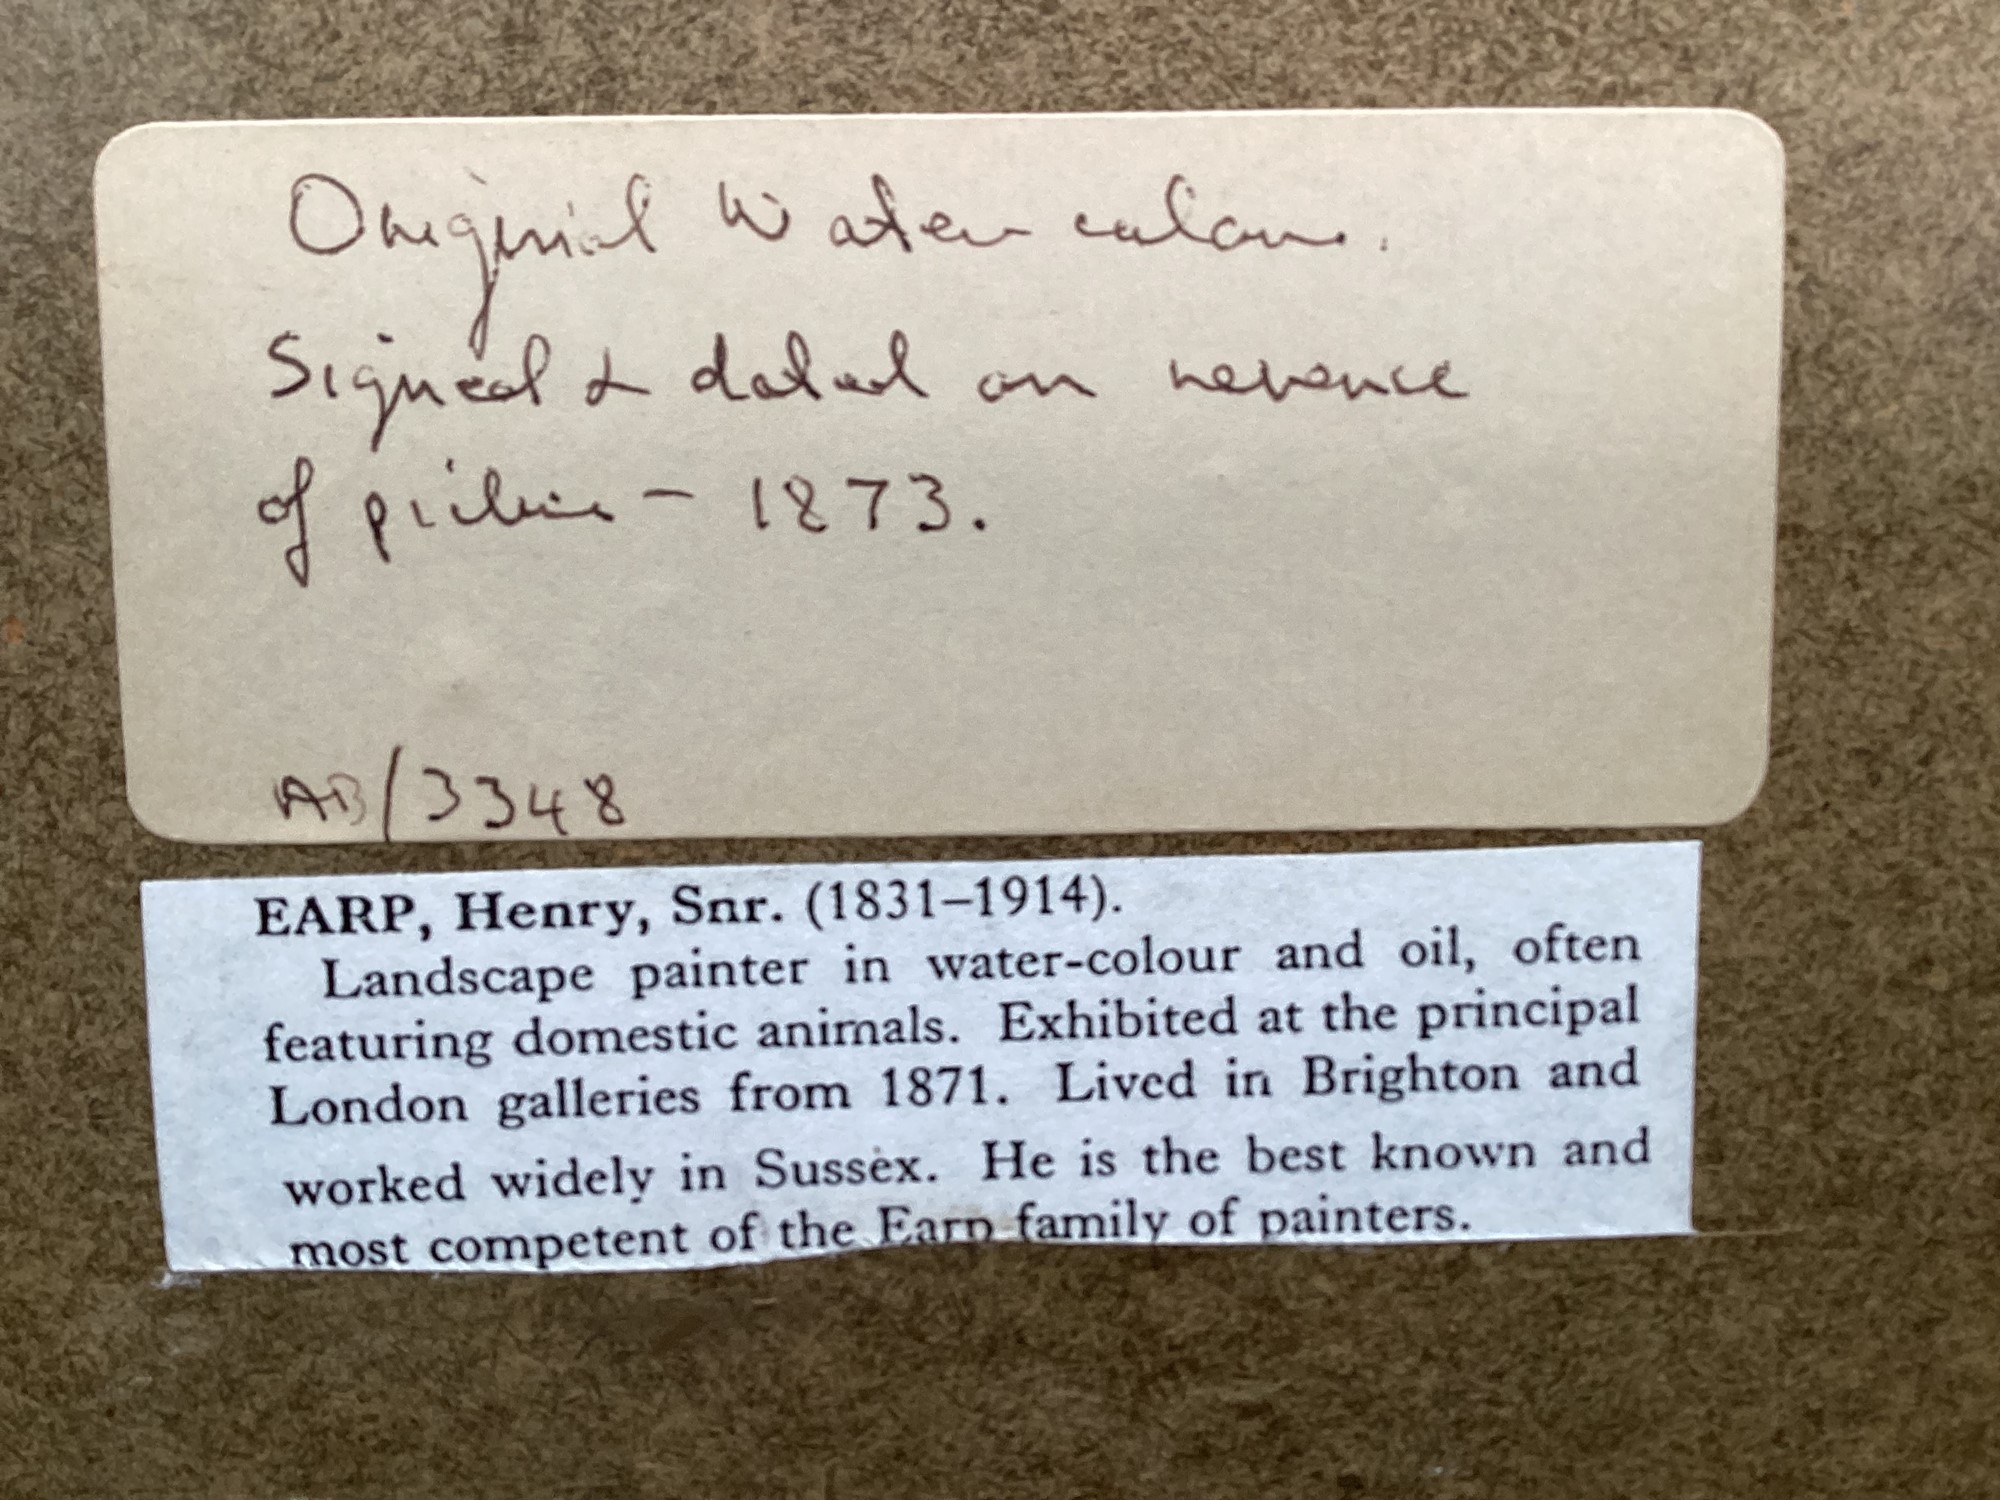 Original Water colour.
Signed & dated on reverse
of picture - 1873.
AB/3348
EARP, Henry, Snr. (1831–1914).
Landscape painter in water-colour and oil, often
featuring domestic animals. Exhibited at the principal
London galleries from 1871. Lived in Brighton and
worked widely in Sussex. He is the best known and
most competent of the Earp family of painters.